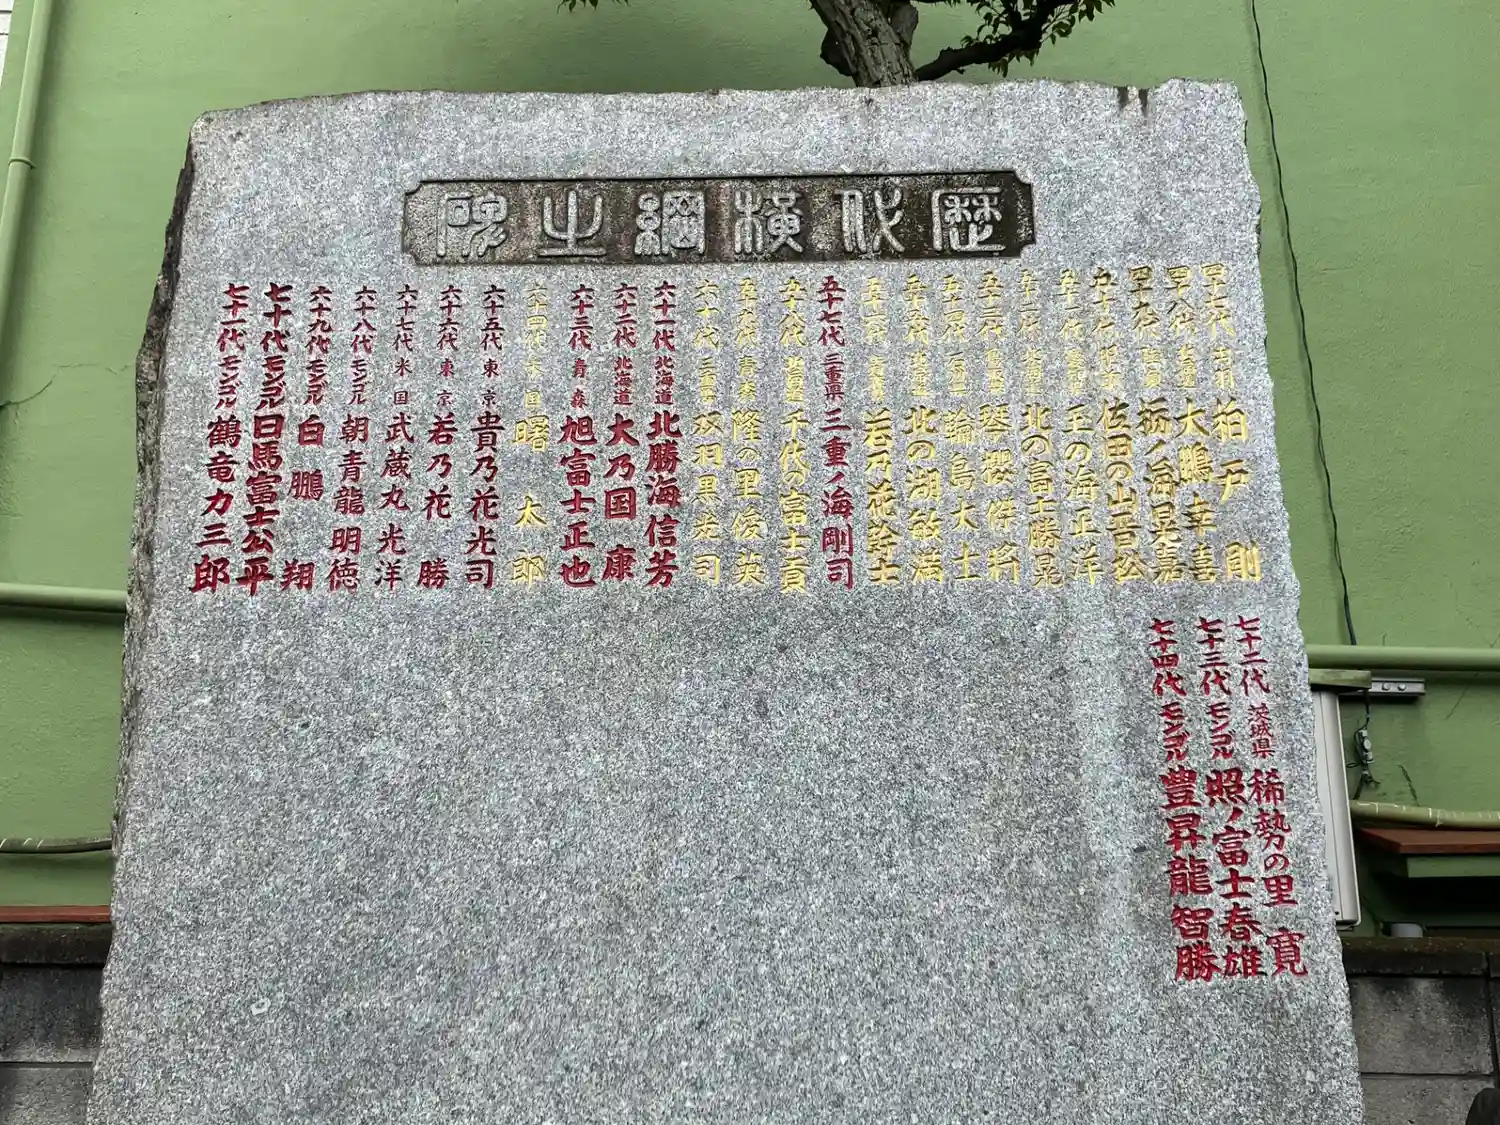 歴代横綱之碑
四七代 山形 柏戸剛
四八代 北海道 大鵬幸喜
四九代 栃ノ海晃嘉
五十代 佐田の山晋松
五十一代 愛知 玉の海正洋
五十二代 北海道 北の富士勝晃
五十三代 鳥取 琴櫻傑将
五十四代 石川 輪島大士
五十五代 北海道 北の湖敏満
五十六代 青森 若乃花幹士
五十七代 三重県 三重ノ海剛司
五十八代 北海道 千代の富士貢
五十九代 青森 隆の里俊英
六十代 三重 双羽黒光司
六十一代 北海道 北勝海信芳
六十二代 北海道 大乃国康
六十三代 青森 旭富士正也
六十四代 米国 曙太郎
六十五代 東京 貴乃花光司
六十六代 東京 若乃花勝
六十七代 米国 武蔵丸光洋
六十八代 モンゴル 朝青龍明徳
六十九代 モンゴル 白鵬翔
七十代 モンゴル 日馬富士公平
七十一代 モンゴル 鶴竜力三郎
七十二代 茨城県 稀勢の里寛
七十三代 モンゴル 照ノ富士春雄
七十四代 モンゴル 豊昇龍智勝